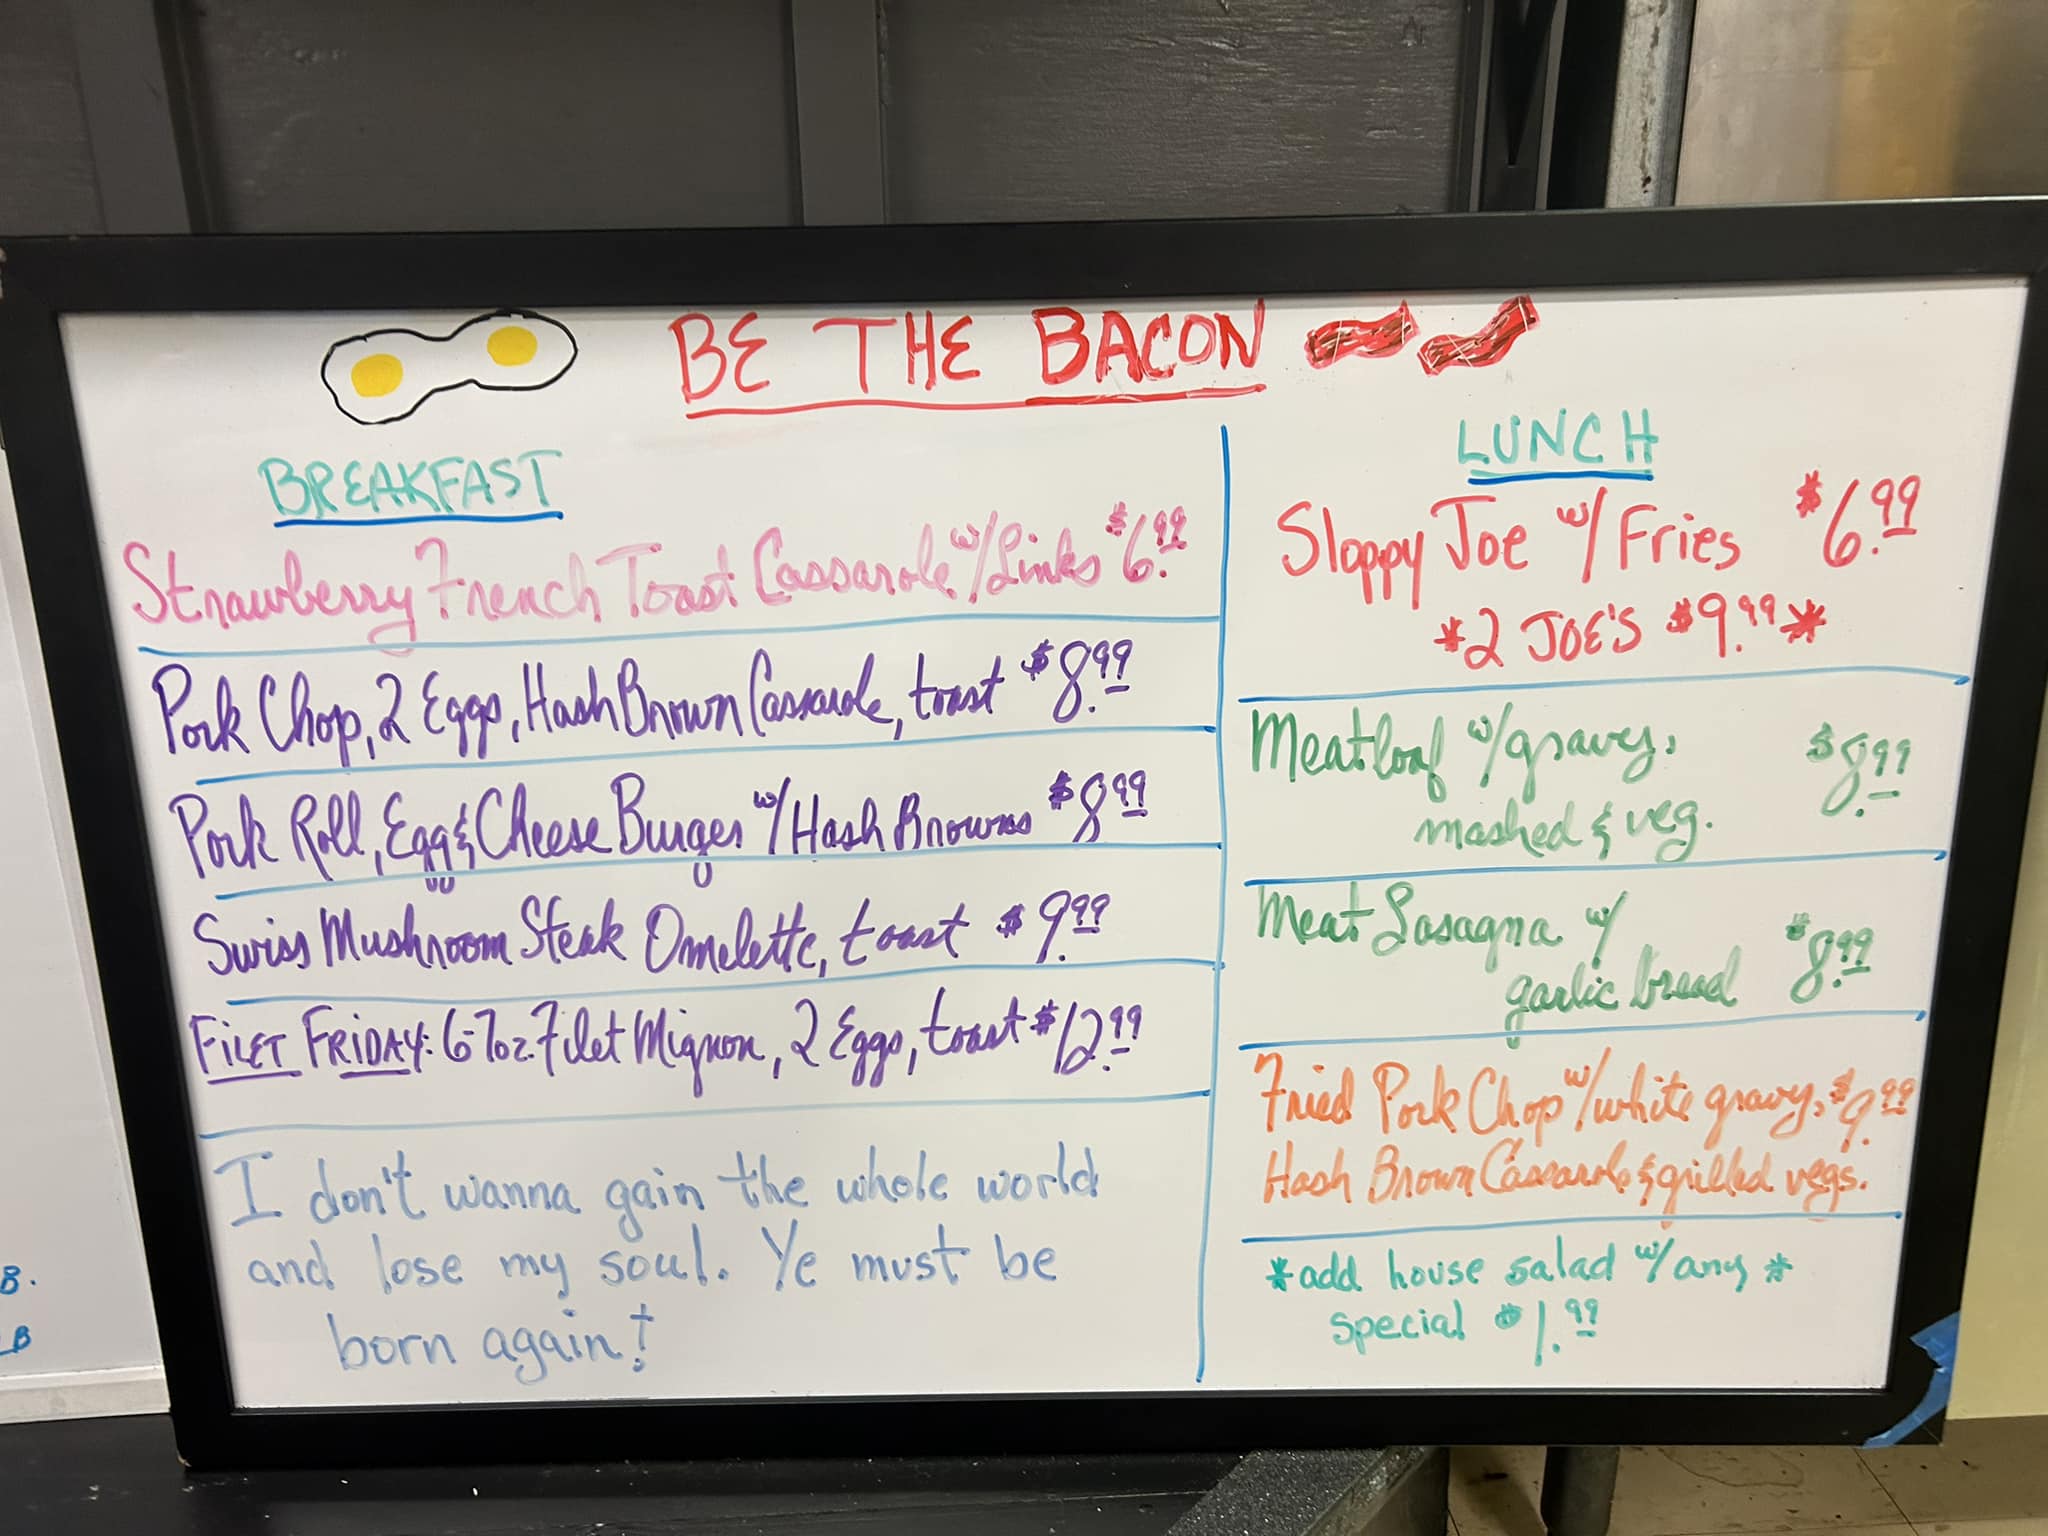 BE THE BACON
BREAKFAST
Strawberry French Toast Cassarole w/Links $6.99
Pork Chop, 2 Eggs, Hash Brown Cassarole, toast $8.99
Pork Roll, Egg & Cheese Burger w/Hash Browns $8.99
Swiss Mushroom Steak Omelette, toast $9.99
FILET FRIDAY: 6-7oz. Filet Mignon, 2 Eggs, toast $12.99
I don't wanna gain the whole world
and lose my soul. Ye must be
born again!
LUNCH
Sloppy Joe w/Fries $6.99
*2 JOE'S $9.99*
Meatloaf w/gravy, $8.99
mashed & veg.
Meat Lasagna w/
garlic bread $8.99
Fried Pork Chop w/white gravy, $9.99
Hash Brown Cassarole & grilled vegs.
*add house salad w/any*
special $1.99
B.
B